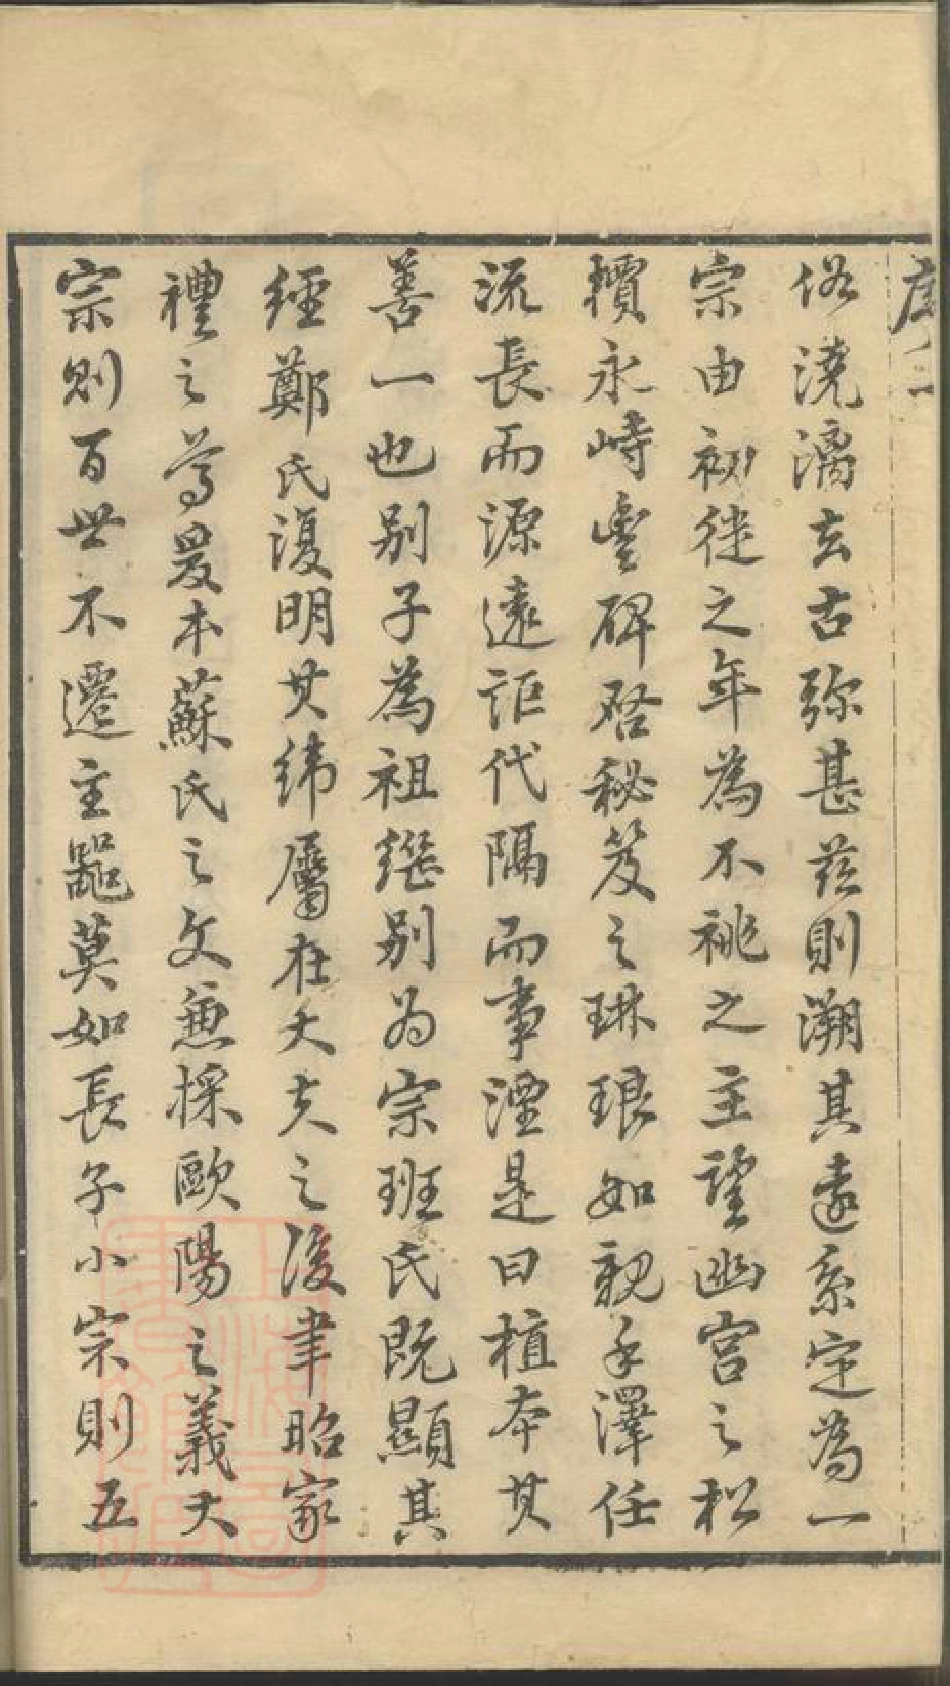 序二
俗澆漓去古弥甚茲則溯其遠系定為一
宗由初徙之年為不祧之主望幽宮之松
檟永峙豐碑啓秘笈之琳琅如親手澤任
流長而源遠詎代隔而事湮是曰植本其
善一也别子為祖繼别为宗班氏既顯其
經鄭氏復明其緯屬在大夫之後聿昭家
禮之尊爰本蘇氏之文兼採歐陽之義大
宗則百世不遷主鬯莫如長子小宗則五